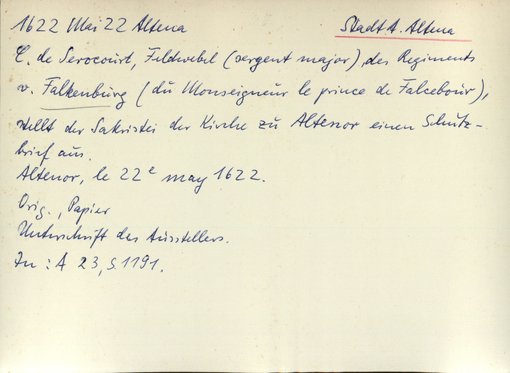 1622 Mai 22 Altena Stadt A. Altena
C. de Serocourt, Feldwebel (sergent major) des Regiments
v. Falkenburg (du Monseigneur le prince de Falcebour),
stellt der Sakristei der Kirche zu Altenor einen Schutz-
brief aus.
Altenor, le 22e may 1622.
Orig., Papier
Unterschrift des Ausstellers.
In: A 23, S. 1191.